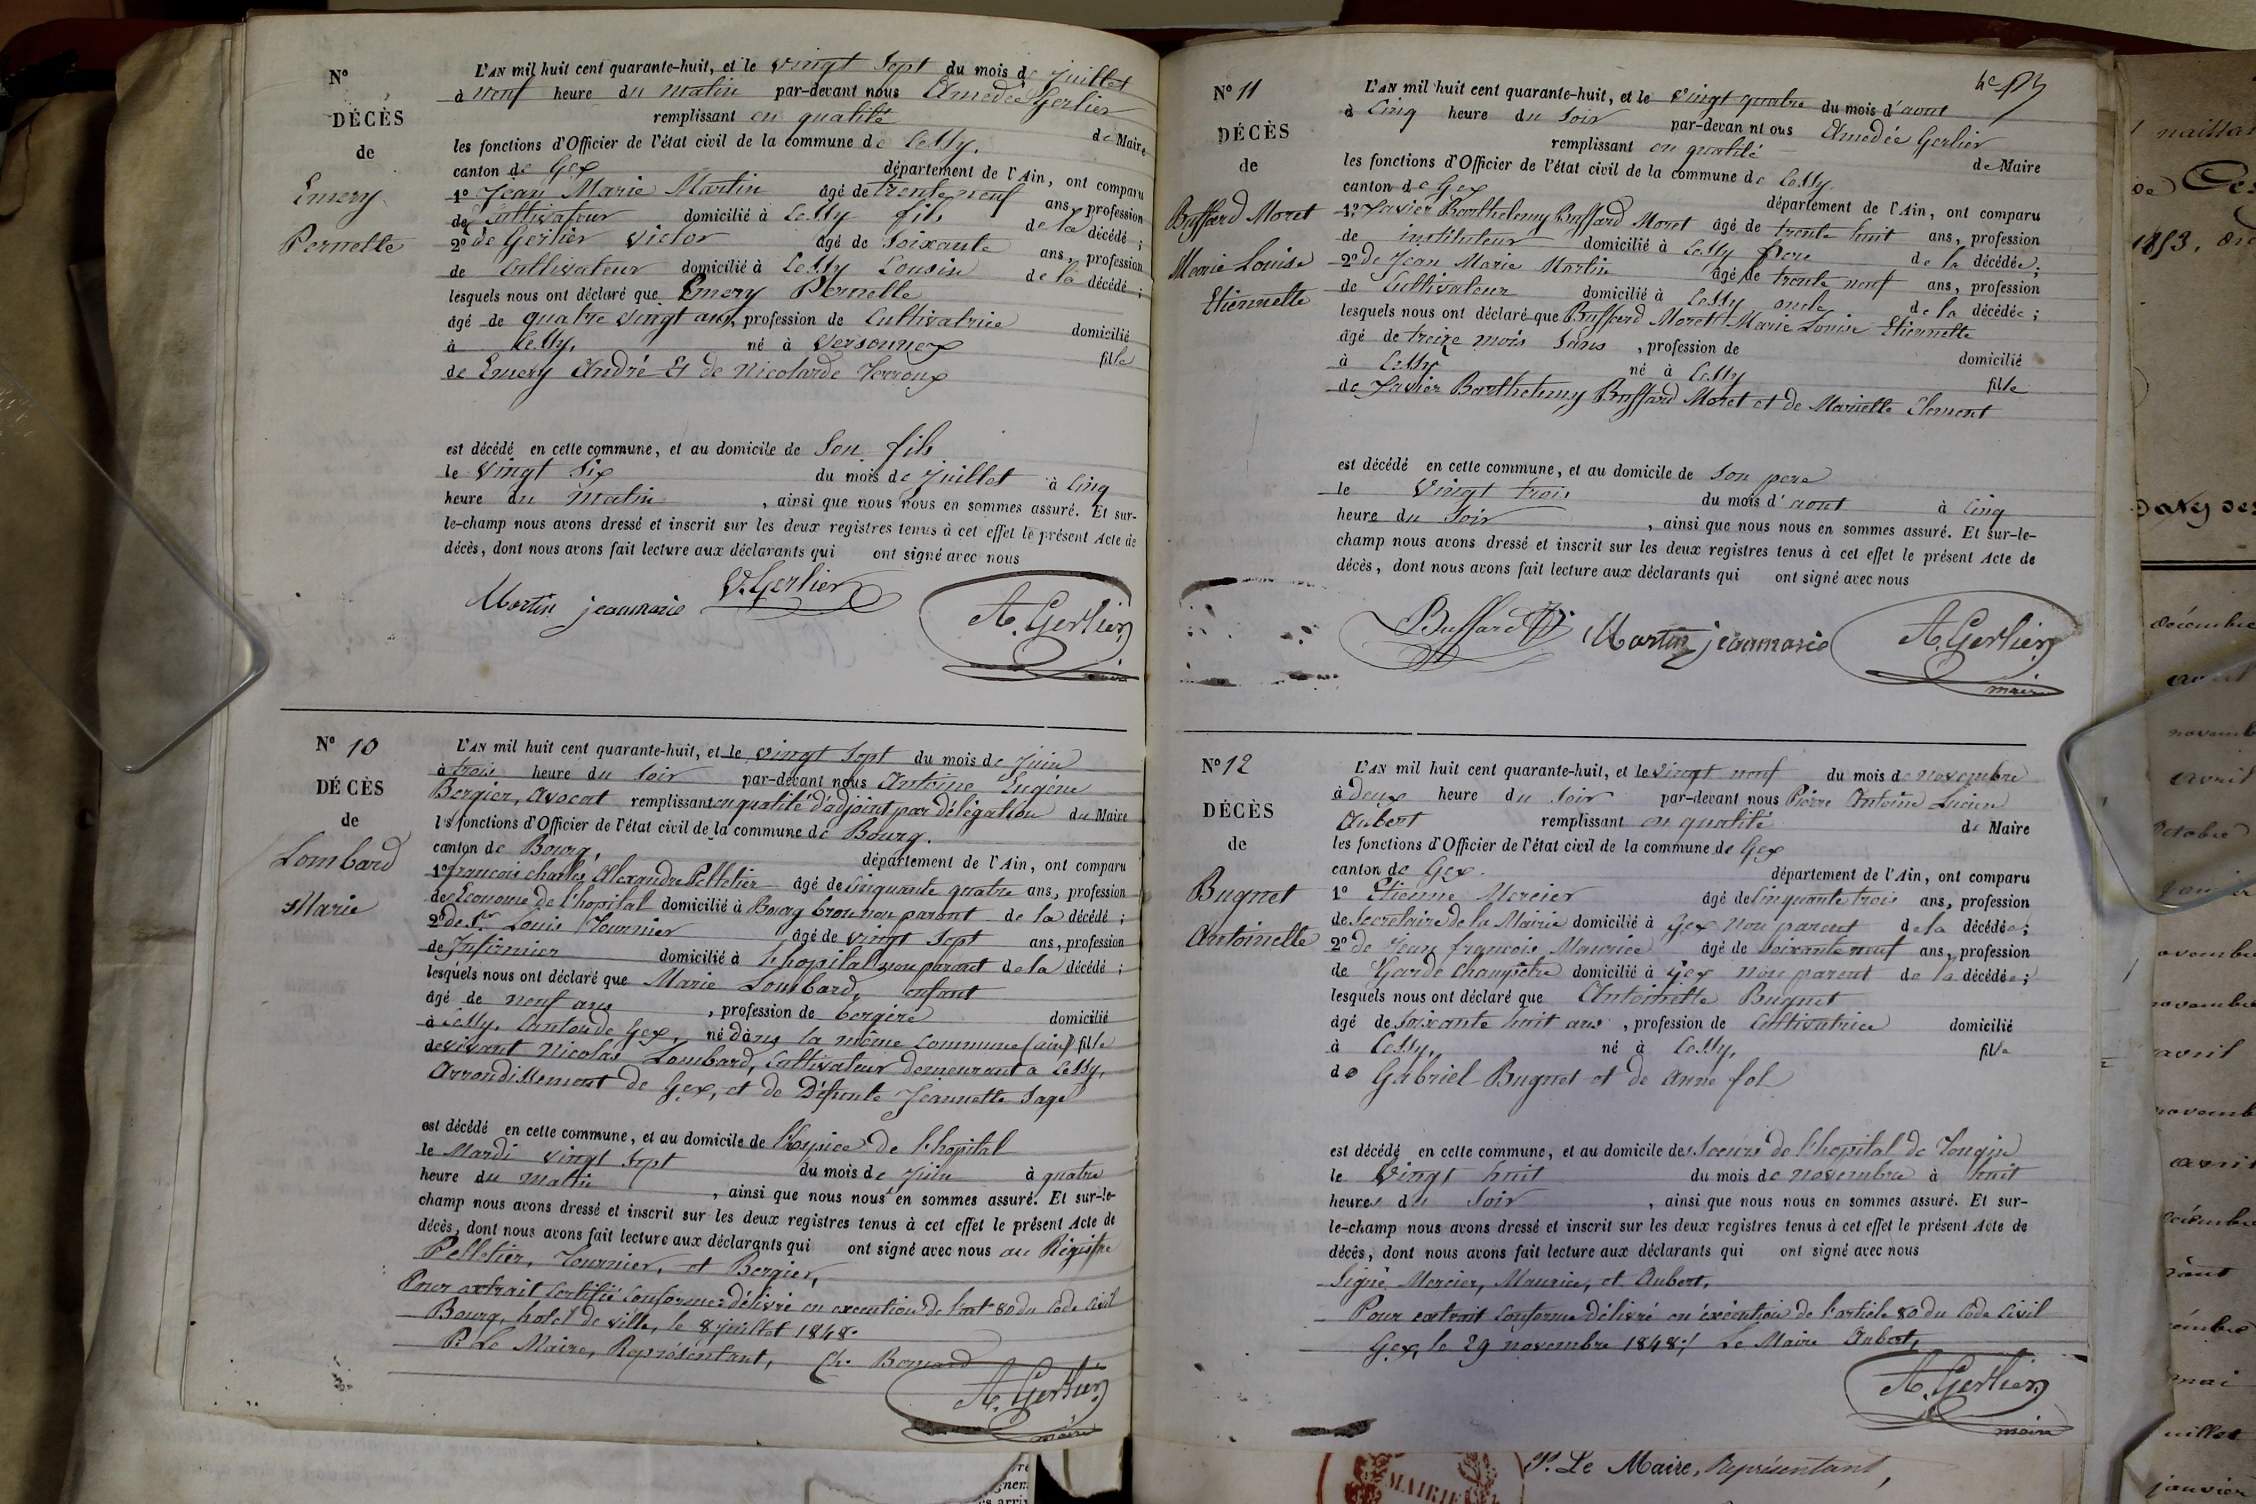 N°
DÉCÈS
de
Emery
Pernette
L'AN mil huit cent quarante-huit, et le vingt sept du mois de juillet
à neuf heure du matin par-devant nous Amedée Gerlier
remplissant en qualité de Maire
les fonctions d'Officier de l'état civil de la commune de Cessy.
canton de Gex département de l'Ain, ont comparu
1° Jean Marie Martin âgé de trente neuf ans, profession
de Cultivateur domicilié à Cessy fils de la décédé;
2° de Gerlier Victor âgé de soixante ans, profession
de Cultivateur domicilié à Cessy Cousin de la décédé;
lesquels nous ont déclaré que Emery Pernette
âgé de quatre vingt ans, profession de Cultivatrice domicilié
à Cessy, né à Versonnex fille
de Emery André Et de Nicolarde Verroux
est décédé en cette commune, et au domicile de Son fils
le vingt Six du mois de juillet à Cinq
heure du matin, ainsi que nous nous en sommes assuré. Et sur-
le-champ nous avons dressé et inscrit sur les deux registres tenus à cet effet le présent Acte de
décès, dont nous avons fait lecture aux déclarants qui ont signé avec nous
Martin jeanmarie V. Gerlier A. Gerlier
maire
N° 10
DÉCÈS
de
Lombard
Marie
L'AN mil huit cent quarante-huit, et le vingt sept du mois de juin
à trois heure du Soir par-devant nous Antoine Eugène
Bergier, avocat remplissant en qualité d'adjoint par délégation du Maire
les fonctions d'Officier de l'état civil de la commune de Bourg.
canton de Bourg, département de l'Ain, ont comparu
1° françois charles Alexandre Pelletier âgé de Cinquante quatre ans, profession
de Econome de l'hopital domicilié à Bourg brou non parent de la décédé;
2° de Sr Louis Tournier âgé de vingt Sept ans, profession
de Infirmier domicilié à l'hopital non parent de la décédé;
lesquels nous ont déclaré que Marie Lombard, enfant
âgé de neuf ans, profession de bergère domicilié
à Cessy, Canton de Gex, né dans la même Commune (ain) fille
de vivant Nicolas Lombard, Cultivateur demeurant a Cessy,
Arrondissement de Gex, et de Défunte Jeannette Sage
est décédé en cette commune, et au domicile de l'hospice de l'hopital
le Mardi vingt Sept du mois de juin à quatre
heure du matin, ainsi que nous nous en sommes assuré. Et sur-le-
champ nous avons dressé et inscrit sur les deux registres tenus à cet effet le présent Acte de
décès, dont nous avons fait lecture aux déclarants qui ont signé avec nous au Régistre
Pelletier, Tournier, et Bergier,
Pour extrait Certifié Conforme: délivré en execution de l'art 80 du Code Civil
Bourg, hotel de ville, le 8 juillet 1848.
P. Le Maire, Représentant, Ch. Bernard
A. Gerlier
maire
N° 11
DÉCÈS
de
Buffard Moret
Marie Louise
Etiennette
L'AN mil huit cent quarante-huit, et le vingt quatre du mois d'aout
à Cinq heure du Soir par-devan nt ous Amedée Gerlier
remplissant en qualité de Maire
les fonctions d'Officier de l'état civil de la commune de Cessy
canton de Gex département de l'Ain, ont comparu
1° Xavier Barthelemy Buffard Moret âgé de trente huit ans, profession
de instituteur domicilié à Cessy pere de la décédée;
2° de Jean Marie Martin âgé de trente neuf ans, profession
de Cultivateur domicilié à Cessy oncle de la décédée;
lesquels nous ont déclaré que Buffard Moret Marie Louise Etiennette
âgé de treize mois Sans, profession de domicilié
à Cessy né à Cessy fille
de Xavier Barthelemy Buffard Moret et de Mariette Clement
est décédé en cette commune, et au domicile de Son pere
le Vingt trois du mois d'aout à Cinq
heure du Soir, ainsi que nous nous en sommes assuré. Et sur-le-
champ nous avons dressé et inscrit sur les deux registres tenus à cet effet le présent Acte de
décès, dont nous avons fait lecture aux déclarants qui ont signé avec nous
Buffard Martin jeanmarie A. Gerlier
maire
N° 12
DÉCÈS
de
Bugnet
Antoinette
L'AN mil huit cent quarante-huit, et le vingt neuf du mois de novembre
à deux heure du Soir par-devant nous Pierre Antoine Lucien
Aubert remplissant en qualité de Maire
les fonctions d'Officier de l'état civil de la commune de Gex
canton de Gex. département de l'Ain, ont comparu
1° Etienne Mercier âgé de Cinquante trois ans, profession
de Secretaire de la Mairie domicilié à Gex Non parent de la décédée;
2° de Jean françois Maurice âgé de Soixante neuf ans, profession
de Garde Champêtre domicilié à Gex non parent de la décédée;
lesquels nous ont déclaré que Antoinette Bugnet
âgé de Soixante huit ans, profession de Cultivatrice domicilié
à Cessy, né à Cessy, fille
de Gabriel Bugnet et de anne fol
est décédé en cette commune, et au domicile des Soeurs de l'hopital de Tougin
le Vingt huit du mois de novembre à huit
heures du Soir, ainsi que nous nous en sommes assuré. Et sur-
le-champ nous avons dressé et inscrit sur les deux registres tenus à cet effet le présent Acte de
décès, dont nous avons fait lecture aux déclarants qui ont signé avec nous
Signé Mercier, Maurice, et Aubert,
Pour extrait Conforme délivré en éxécution de l'article 80 du Code Civil
Gex, le 29 novembre 1848./ Le Maire Aubert,
A. Gerlier
maire
MAIRIE
P. Le Maire, Représentant,
1853.
décembre
avril
novemb
avril
octobre
novembre
avril
novemb
avril
mai
juillet
janvier